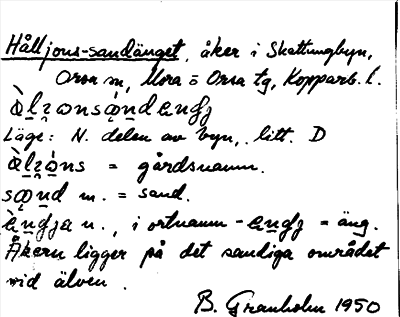 Hålljons-sandänget, åker i Skattungbyn,
Orsa sn, Mora o Orsa tg, Kopparb. l.
Läge: N. delen av byn, litt. D
= gårdsnamn.
m. = sand.
n., i ortnamn - = äng.
Åkern ligger på det sandiga området
vid älven.
B. Granholm 1950